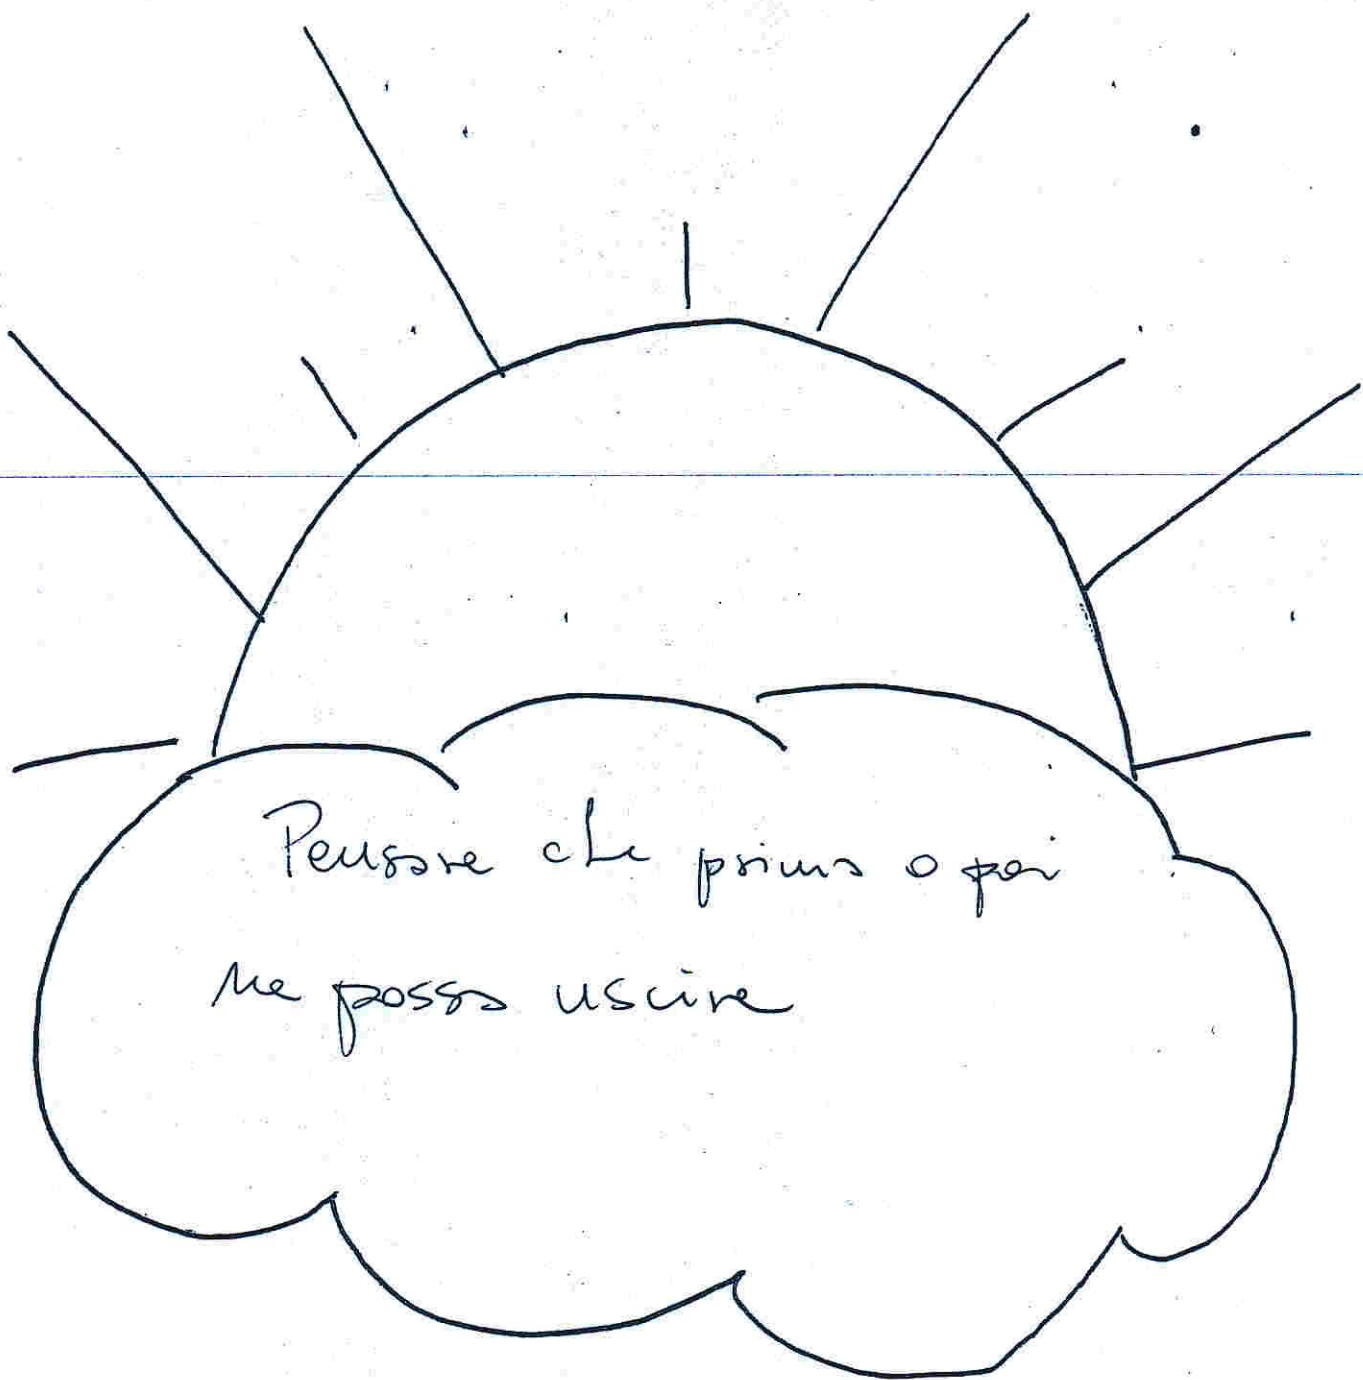 Pensare che prima o poi
ne posso uscire